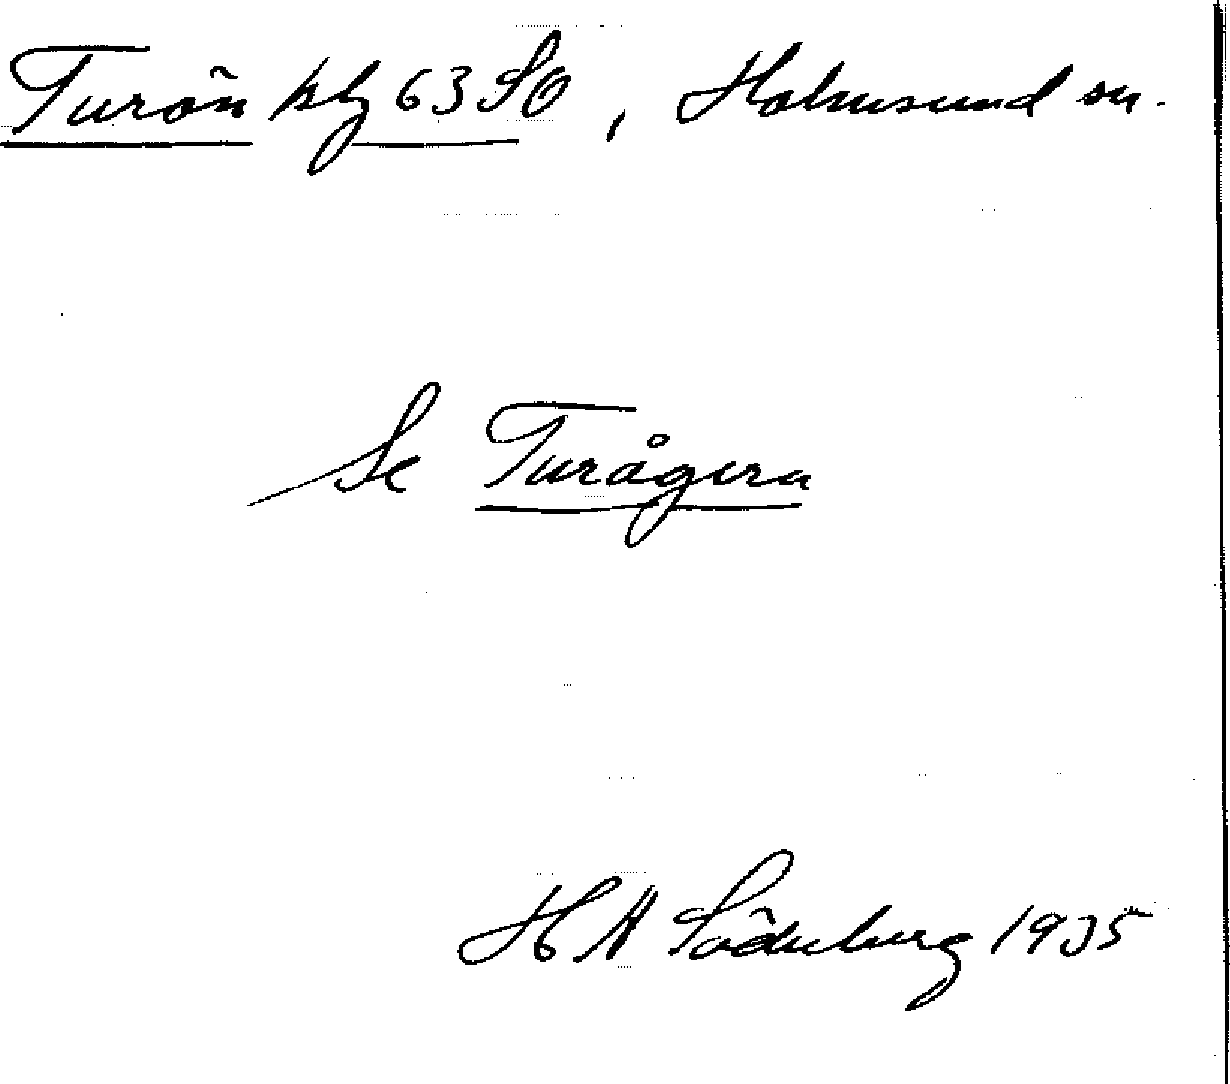 Turön kbl 63 SO, Holmsund sn.
Se Turågern
H A Söderberg 1935